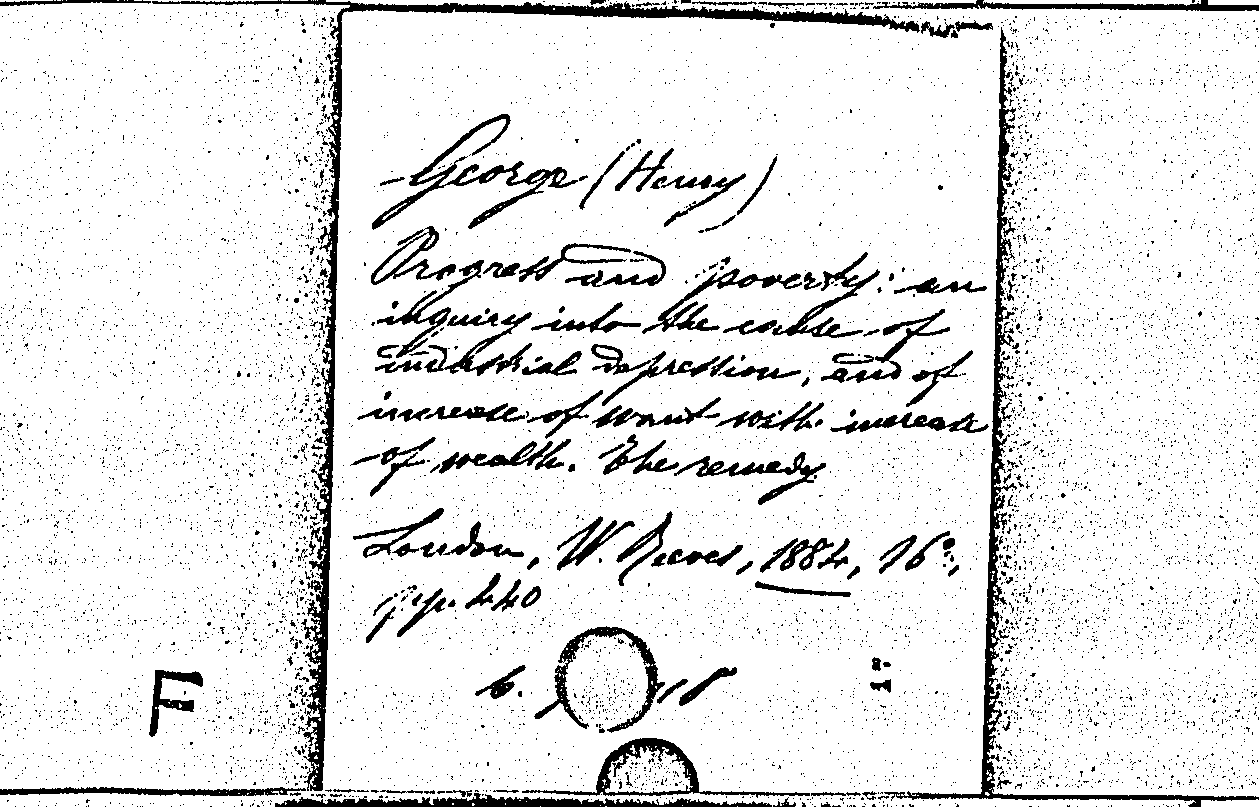 George (Henry)
Progress and poverty: an
inquiry into the cause of
industrial depression, and of
increase of want with increase
of wealth. The remedy
London, W. Reeves, 1884, 16°,
pp. 440
6.
F